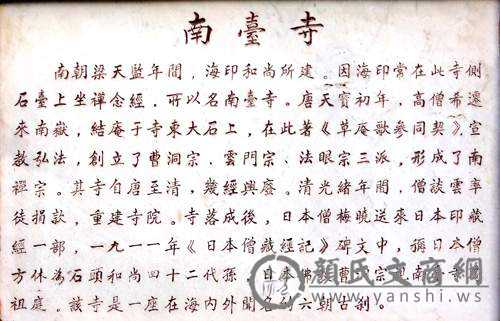 南臺寺
南朝梁天監年間，海印和尚所建。因海印常在此寺側
石臺上坐禪念經，所以名南臺寺。唐天寶初年，高僧希遷
來南嶽，結庵于寺東大石上，在此著《草庵歌參同契》，宣
教弘法，創立了曹洞宗、雲門宗、法眼宗三派，形成了南
禪宗。其寺自唐至清，幾經興廢。清光緒年間，僧談雲率
徒捐款，重建寺院。寺落成後，日本僧梅曉送來日本印藏
經一部，一九一一年《日本僧藏經記》碑文中，稱日本僧
方休為石頭和尚四十二代孫，日本佛教曹洞宗視南臺寺為
祖庭。該寺是一座在海內外聞名的六朝古剎。
顏氏文商網
www.yanshi.ws